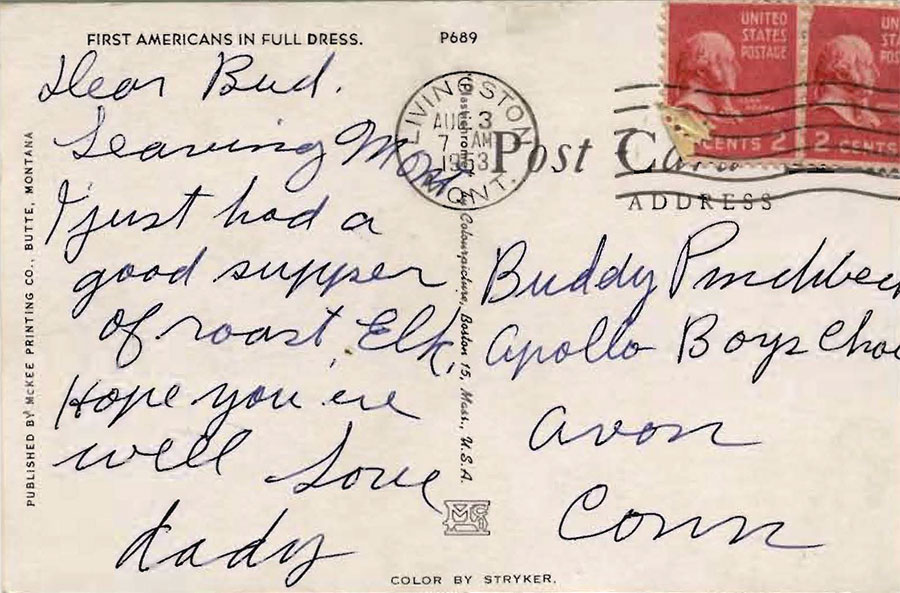 FIRST AMERICANS IN FULL DRESS.
P689
Dear Bud.
Leaving Mont
I just had a
good supper
of roast Elk,
Hope you're
well Love
dady
PUBLISHED BY McKEE PRINTING CO., BUTTE, MONTANA
Plastichrome by Colourpicture, Boston 15, Mass., U.S.A.
LIVINGSTON
AUG 3
7 AM
1953
MONT.
UNITED
STATES
POSTAGE
CENTS 2
UN
STA
POS
2 CENTS
Post Ca
ADDRESS
Buddy Pinchbec
Apollo Boys Choi
Avon
Conn
COLOR BY STRYKER.